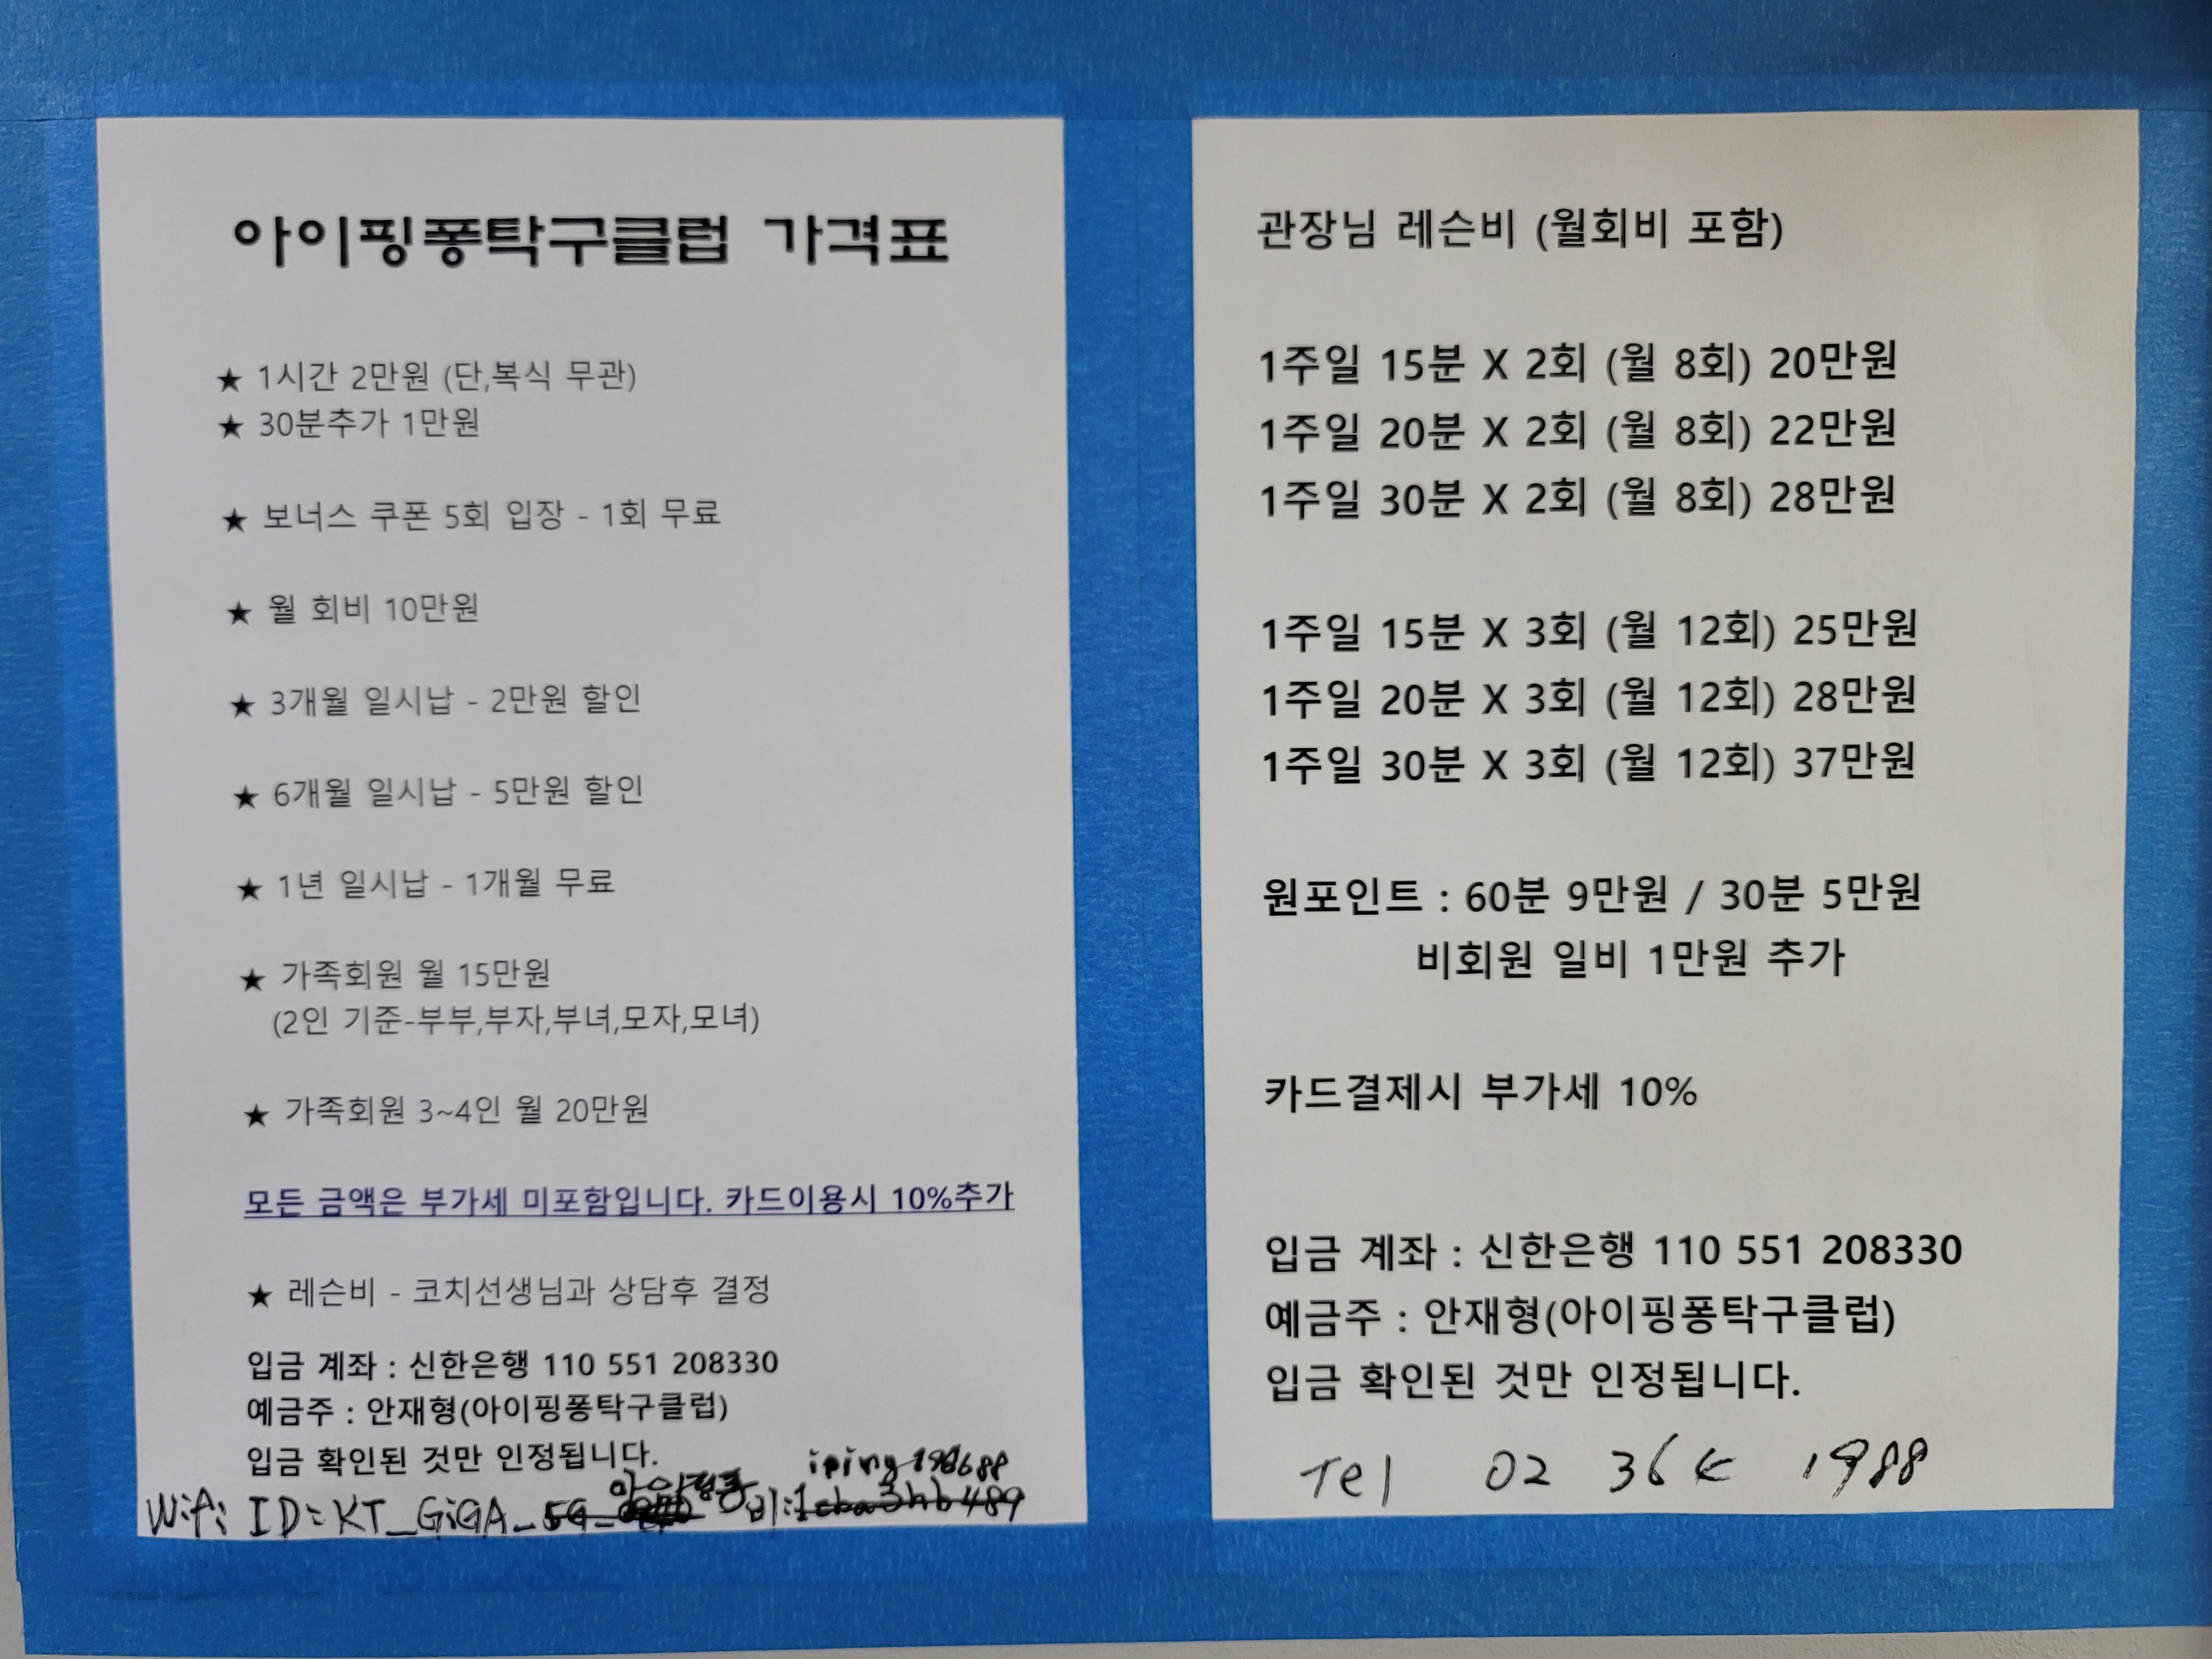 아이핑퐁탁구클럽 가격표
★ 1시간 2만원 (단,복식 무관)
★ 30분추가 1만원
★ 보너스 쿠폰 5회 입장 - 1회 무료
★ 월 회비 10만원
★ 3개월 일시납 - 2만원 할인
★ 6개월 일시납 - 5만원 할인
★ 1년 일시납 - 1개월 무료
★ 가족회원 월 15만원
(2인 기준-부부,부자,부녀,모자,모녀)
★ 가족회원 3~4인 월 20만원
모든 금액은 부가세 미포함입니다. 카드이용시 10%추가
★ 레슨비 - 코치선생님과 상담후 결정
입금 계좌 : 신한은행 110 551 208330
예금주 : 안재형(아이핑퐁탁구클럽)
입금 확인된 것만 인정됩니다.
Wifi ID: KT_GiGA_ 비:
관장님 레슨비 (월회비 포함)
1주일 15분 X 2회 (월 8회) 20만원
1주일 20분 X 2회 (월 8회) 22만원
1주일 30분 X 2회 (월 8회) 28만원
1주일 15분 X 3회 (월 12회) 25만원
1주일 20분 X 3회 (월 12회) 28만원
1주일 30분 X 3회 (월 12회) 37만원
원포인트 : 60분 9만원 / 30분 5만원
비회원 일비 1만원 추가
카드결제시 부가세 10%
입금 계좌 : 신한은행 110 551 208330
예금주 : 안재형(아이핑퐁탁구클럽)
입금 확인된 것만 인정됩니다.
Tel 02 1988